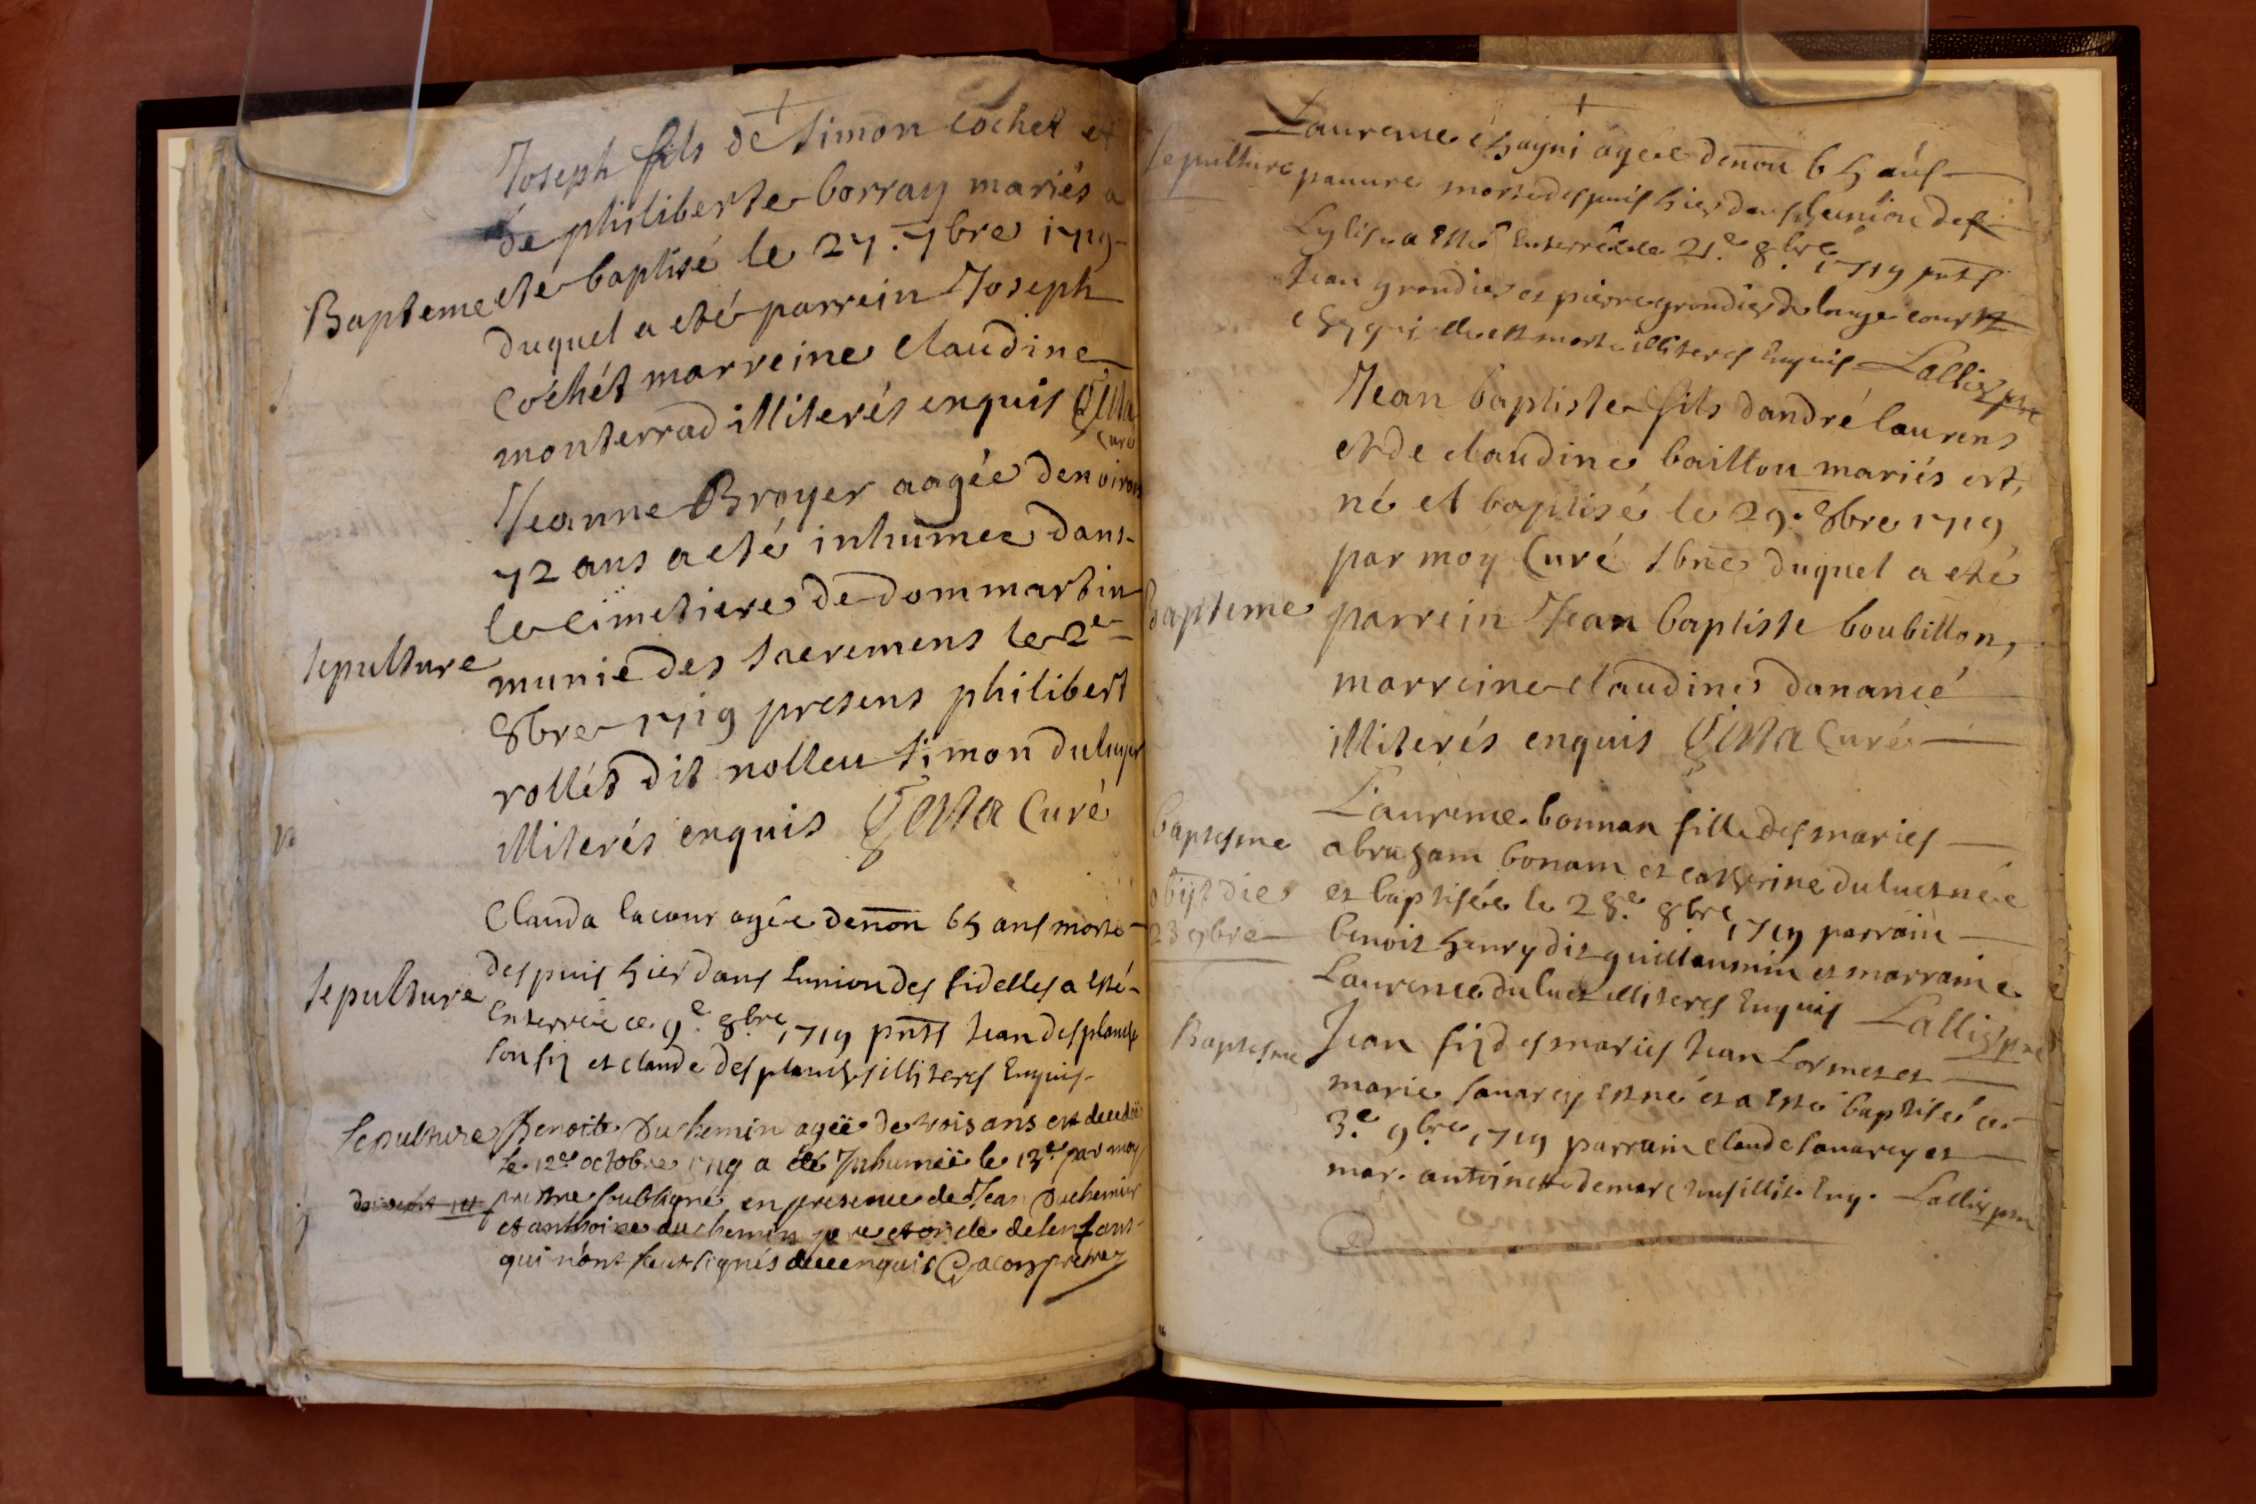 Joseph fils de Simon Cochet et
de philiberte borray mariés a
Bapteme
eté baptisé le 27. 7bre 1719
duquel a eté parrein Joseph
Cochét marreine Claudine
monterrad illiterés enquis
Curé
Jeanne Broyer aagée denviron
72 ans a eté inhumee dans
le cimetiere de dommartin
Sepulture
munie des sacremens le 2e
8bre 1719 presens philibert
rollét dit nolleu Simon duluyer
illiterés enquis Curé
Clauda lacour agée denon 65 ans morte
despuis hier dans lunion des fidelles a esté
Sepulture
Enterrée ce 9e. 8bre 1719 pnts Jean desplanch
son fiz et claude desplanches illiteres Enquis
Sepulture
Benoite Duchemin ageë de trois ans est decedeë
le 12e octobre 1719 a été Inhumeë le 13e par moy
prestre soubsigné en presence de Jean Duchemin
et anthoine duchemin pere et oncle de lenfant
qui n'ont signés enquis prêtre
Laurence chagni agée denon 65 ans
Sepulture
pauure morte despuis hier dans lunion de
Lglise a esté Enterrée le 21e. 8bre 1719 pnts
Jean grondier et pierre grondier de lange court
chez qui elle est morte illiteres Enquis Lallier pre
Jean baptiste fils dandré laurens
et de claudine baillon mariés est,
né et baptisé le 29. 8bre 1719
par moy Curé sbne duquel a eté
Bapteme
parrein Jean baptiste boubillon,
marreine claudine danancé
illiterés enquis Curé
Laurence bonnan fille des maries
Baptesme
abraham bonam et catherine duluet née
obijt die
et baptisée le 28e. 8bre 1719 parrain
23 9bre
benoit henry dit guillaumin et marraine
Laurence duluet illiteres Enquis Lallier pre
Baptesme
Jean fiz des maries Jean Lormet et
marie sauarey est né et a esté baptisé ce
3e. 9bre 1719 parrain claude sauarey et
mar. antoinette illit. Enq. Lallier pre